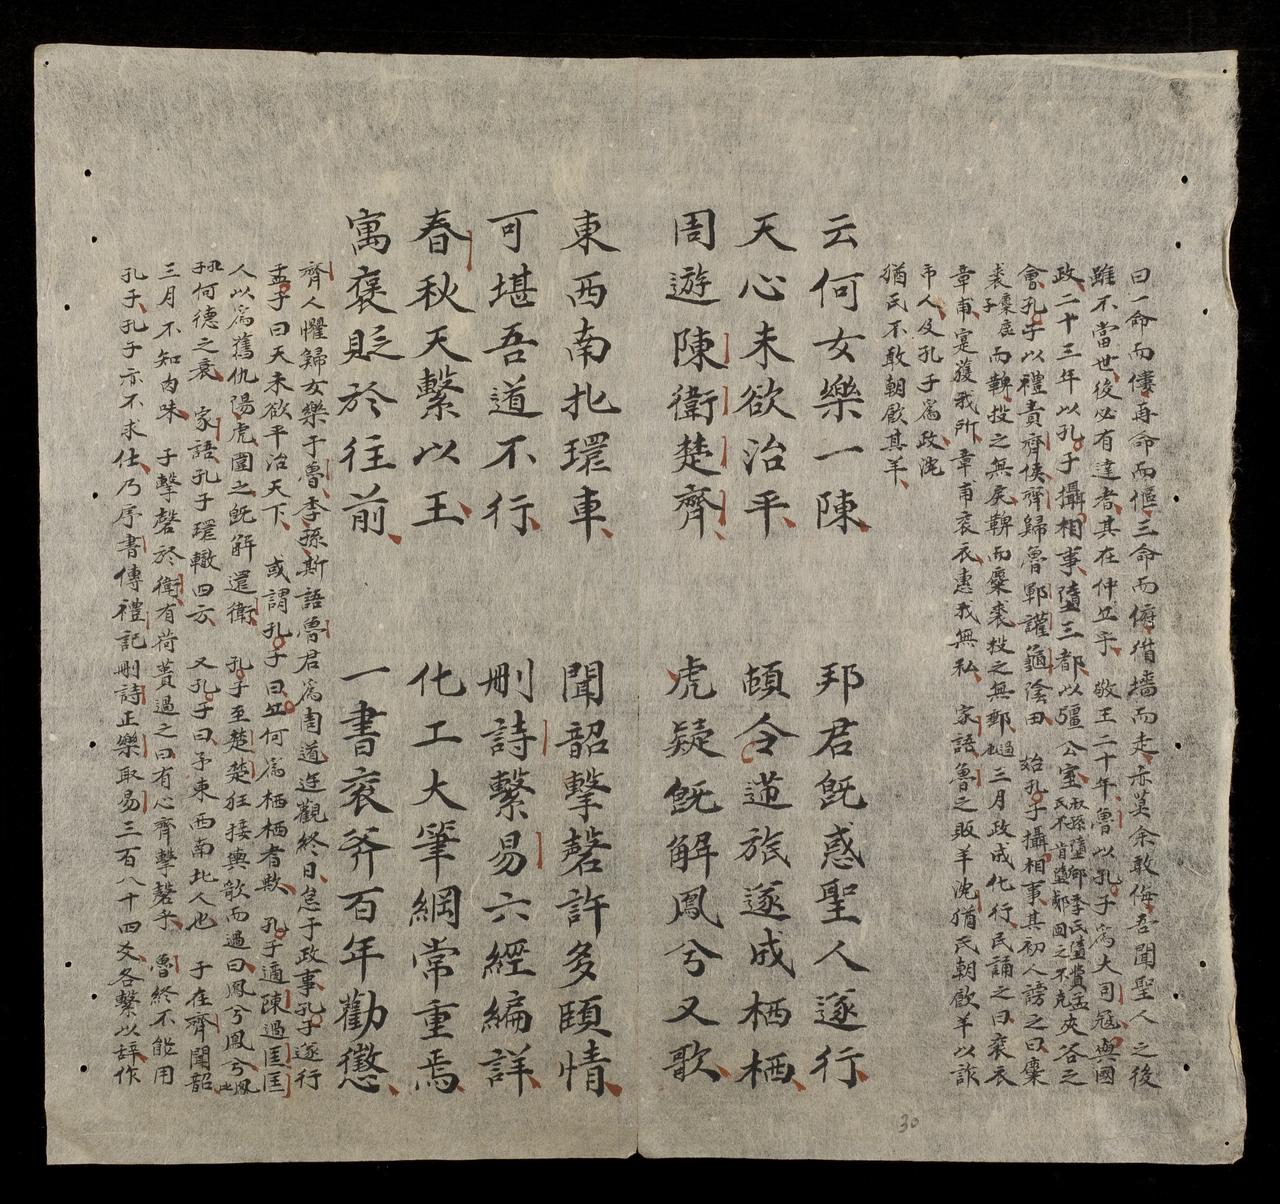 曰一命而僂再命而傴三命而俯循墻而走亦莫余敢侮吾聞聖人之後
雖不當世後必有達者其在仲丘乎 敬王二十年魯以孔子爲大司冦與國
政二十三年以孔子攝相事墮三都以彊公室叔孫墮郈季氏墮費孟氏不肯墮郕圍之不克夾谷之
會孔子以禮責齊侯齊歸魯鄆讙龜陰田 始孔子攝相事其初人謗之曰麋
裘而鞞投之無戾鞞而麋裘投之無郵 三月政成化行民誦之曰衮衣
章甫寔獲我所章甫衮衣惠我無私 家語魯之販羊沈猶氏朝飲羊以詐
市人及孔子爲政沈
猶氏不敢朝飲其羊
云何女樂一陳 邦君旣惑聖人遂行
天心未欲治平 頓令道旅遂成栖栖
周遊陳衛楚齊 虎疑旣解鳳兮又歌
東西南北環車 聞韶擊磬許多頤情
可堪吾道不行 刪詩繫易六經編詳
春秋天繫以王 化工大筆綱常重焉
寓褒貶於往前 一書衮斧百年勸懲
齊人懼歸女樂于魯季孫斯語魯君爲周道遊觀終日怠于政事孔子遂行
孟子曰天未欲平治天下 或謂孔子曰丘何爲栖栖者歟 孔子適陳過匡匡
人以爲舊仇陽虎圍之旣解還衛 孔子至楚楚狂接輿歌而過曰鳳兮鳳兮
何德之衰 家語孔子環轍四方 又孔子曰予東西南北人也 子在齊聞韶
三月不知肉味 子擊磬於衛有荷蕢過之曰有心齊擊磬乎 魯終不能用
孔子孔子亦不求仕乃序書傳禮記刪詩正樂取易三百八十四爻各繫以辞作
30